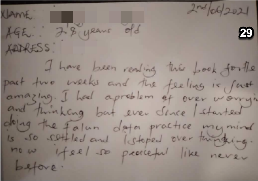 NAME
2nd/04/2021
29
AGE: 28 years old
ADDRESS:
I have been reading this book for the
past two weeks and the feeling is just
amazing. I had a problem of over worrying
and thinking but ever since I started
doing the falun dafa practice my mind
is so settled and listened over thinking.
now i feel so peaceful like never
before.